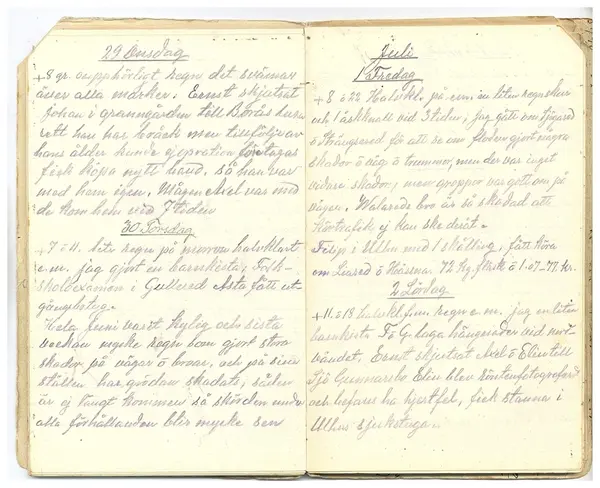 29 Onsdag
+8 gr. oupphörligt regn det svämar
över alla marker. Ernst skjutsat
Johan i granngården till Borås lasa-
rett han har bråck men tillfölje av
hans ålder kunde ej operation företagas
fick köpa nytt band, så han var
med hem igen. Axel var med
de kom hem vid 7 tiden
30 Torsdag
+7 o 11. regn på morron halvklart
e.m. jag gjort en barnkista, Folk-
skolexamen i Gullered Asta fått ut-
gångsbetyg.
Hela Juni varit kylig och sista
veckan mycke regn som gjort stora
skador på vägar o broar, och på sina
ställen har grödan skadats, säden
är ej långt kommen så skörden under
alla förhållanden blir mycke sen
Juli
1 Fredag
+8 o 22 Halvkl. på e.m. en liten regnskur
och 1 åskknall vid 3 tiden, jag gått om
o Strängsered för att se om floden gjort några
skador o väg o trummor, men der var inget
vidare skador, men gropar var gott om på
vägen. Bro är så skadad att
ej kan ske derut.
i Ulhu med 1 skälling, fått köra
om Liared o 72 kg. fläsk o 1.07-77 kr.
2 Lördag
+11 o 18 halvkl f.m. regn e.m. jag en liten
barnkista F o G. laga hängrader vid
Ernst skjutsat Axel o Elin till
sjö Gunnarsbo Elin blev röntenfotograferad
och befaras ha hjertfel, fick stanna i
Ulhus sjukstuga.